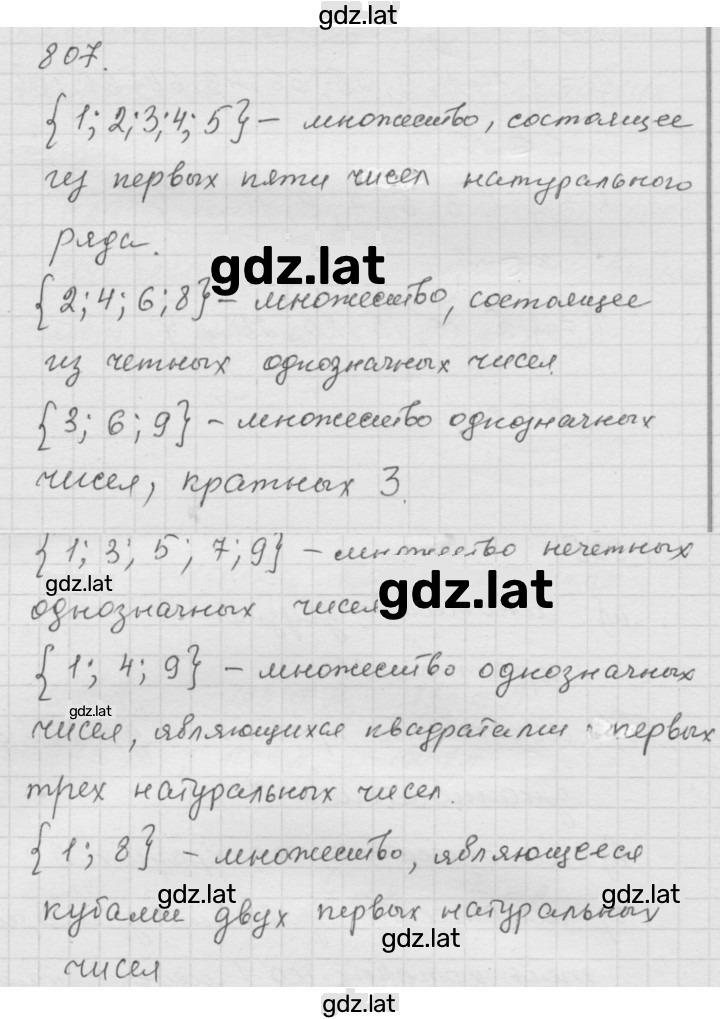 gdz.lat
807.
{1; 2; 3; 4; 5} – множество, состоящее
из первых пяти чисел натурального
ряда.
gdz.lat
{2; 4; 6; 8} – множество, состоящее
из четных однозначных чисел.
{3; 6; 9} – множество однозначных
чисел, кратных 3.
{1; 3; 5; 7; 9} – множество нечетных
gdz.lat
gdz.lat
однозначных чисел
{1; 4; 9} – множество однозначных
gdz.lat
чисел, являющихся квадратами первых
трех натуральных чисел.
{1; 8} – множество, являющееся
gdz.lat
gdz.lat
кубами двух первых натуральных
gdz.lat
чисел
gdz.lat